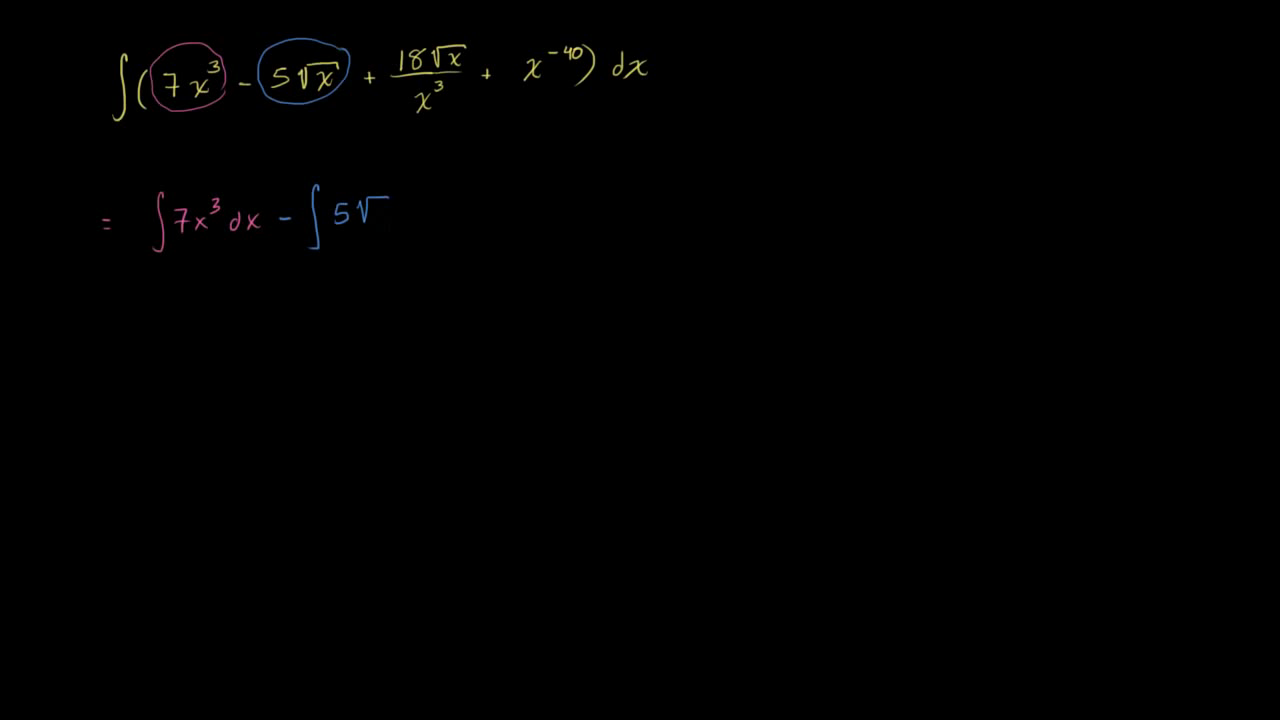 ∫(7x³ - 5√x + 18√x/x³ + x⁻⁴⁰) dx
= ∫7x³ dx - ∫5√